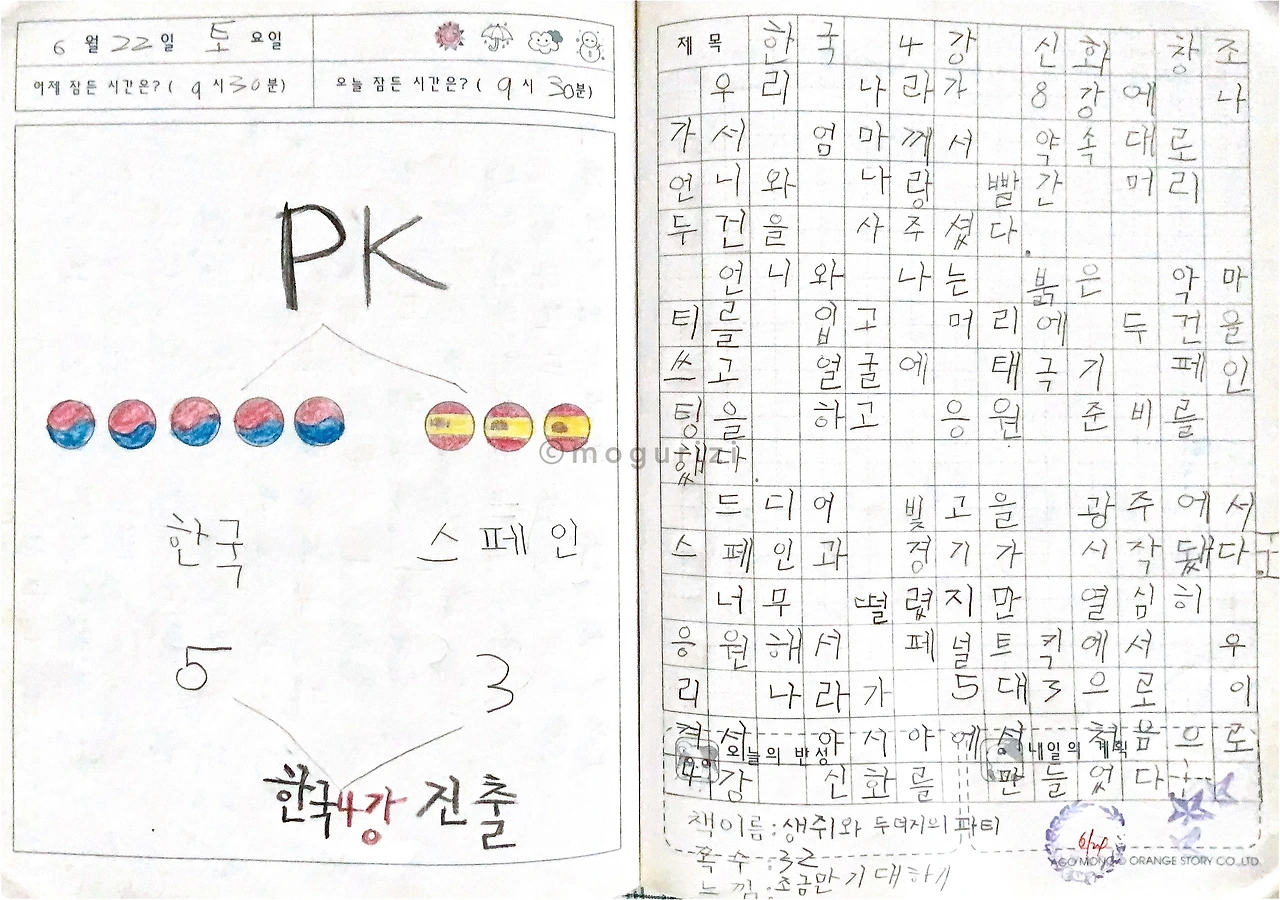 6 월 22 일 토 요일
어제 잠든 시간은? ( 9 시 30 분)
오늘 잠든 시간은? ( 9 시 30 분)
PK
한국 스페인
5 3
한국4강 진출
제 목 한국 4강 신화 창조
우리 나라가 8강에 나
가서 엄마께서 약속대로
언니와 나랑 빨간 머리
두건을 사주셨다.
언니와 나는 붉은 악마
티를 입고 머리에 두건을
쓰고 얼굴에 태극기 페인
팅을 하고 응원 준비를
했다.
드디어 빛고을 광주에서
스페인과 경기가 시작됐다
너무 떨렸지만 열심히
응원해서 페널트킥에서 우
리 나라가 5대3으로 이
켜서 아시아에선 처음으로
4강 신화를 만들었다
오늘의 반성
내일의 계획
책이름 : 생쥐와 두더지의 파티
쪽 수 : 32
느 낌 : 조금만 기대하시
©mogurizi
ORANGE STORY CO.,LTD.